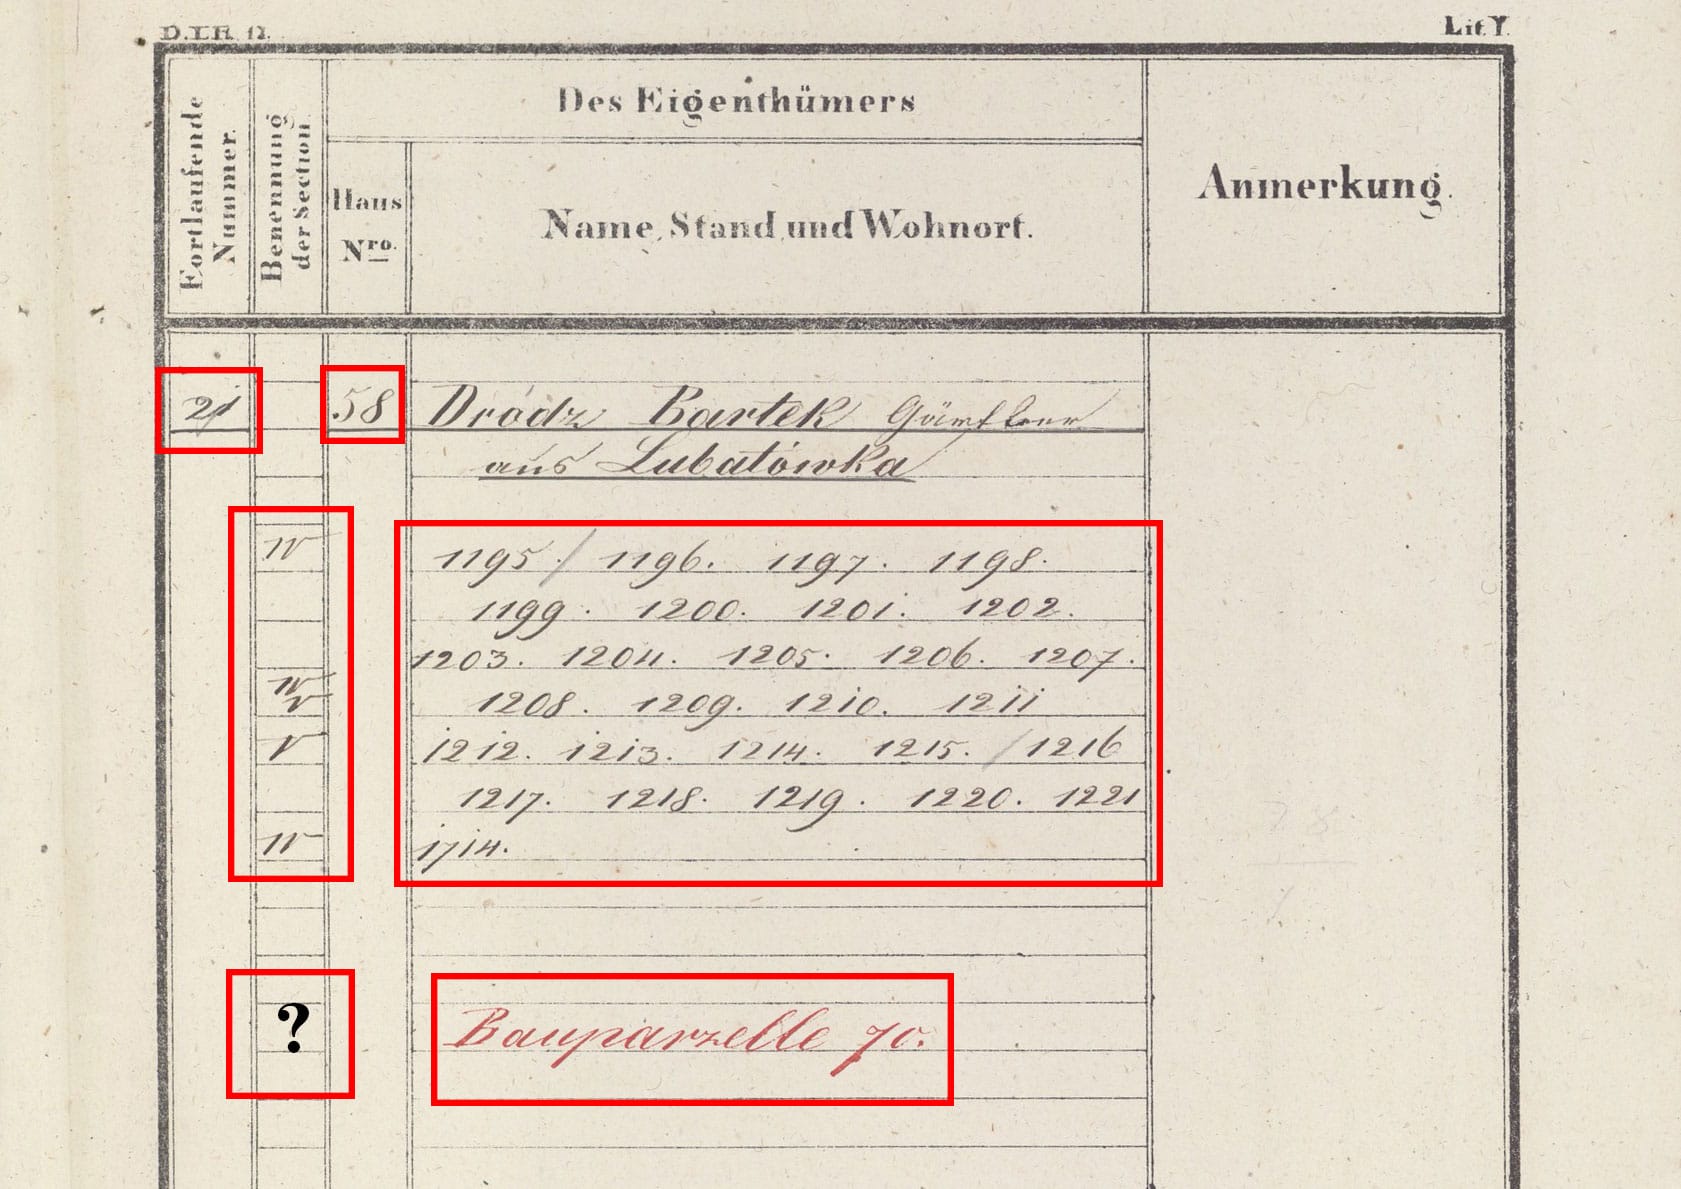 D.I.H. 12.
Lit. Y.
Fortlaufende Nummer.
Benennung der Section.
Des Eigenthümers
Haus Nro.
Name, Stand und Wohnort.
Anmerkung.
21 58 Dródz Bartek Gärtler
aus Lubatówka
IV 1195. / 1196. 1197. 1198.
1199. 1200. 1201. 1202.
1203. 1204. 1205. 1206. 1207.
IV
V 1208. 1209. 1210. 1211
V 1212. 1213. 1214. 1215. / 1216
1217. 1218. 1219. 1220. 1221
IV 1714.
? Bauparzelle 70.